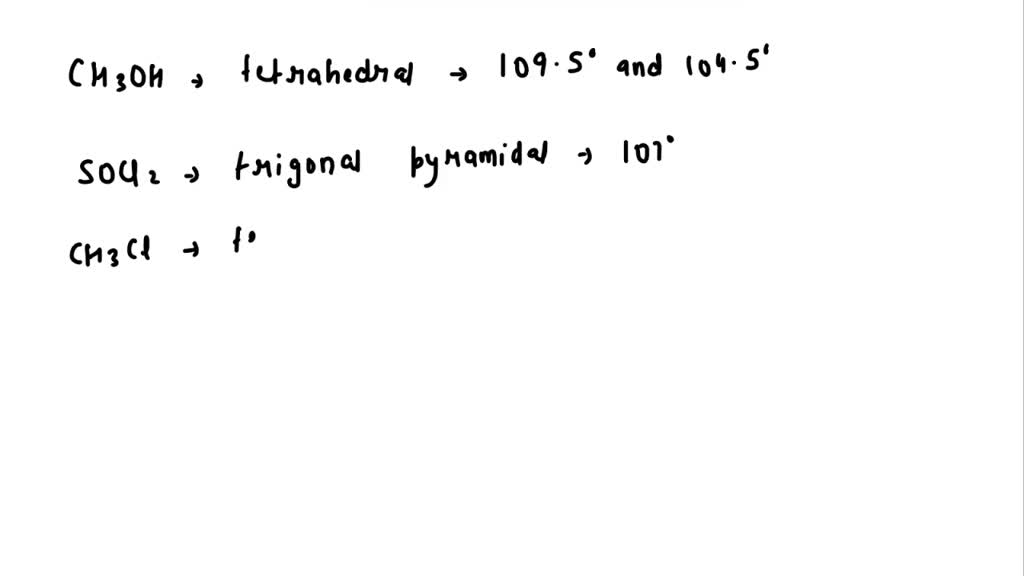 CH3OH → tetrahedral → 109.5° and 104.5°
SOCl2 → trigonal pyramidal → 107°
CH3Cl → t